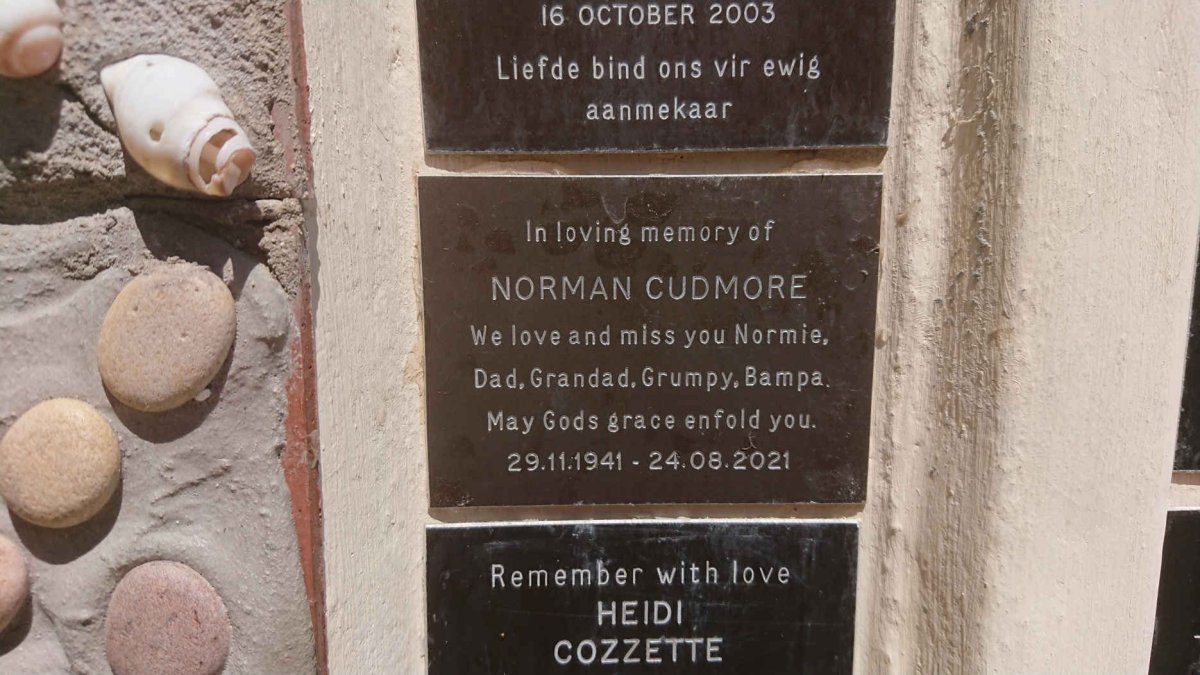 16 OCTOBER 2003
Liefde bind ons vir ewig
aanmekaar
In loving memory of
NORMAN CUDMORE
We love and miss you Normie,
Dad, Grandad, Grumpy, Bampa.
May Gods grace enfold you.
29.11.1941 - 24.08.2021
Remember with love
HEIDI
COZZETTE